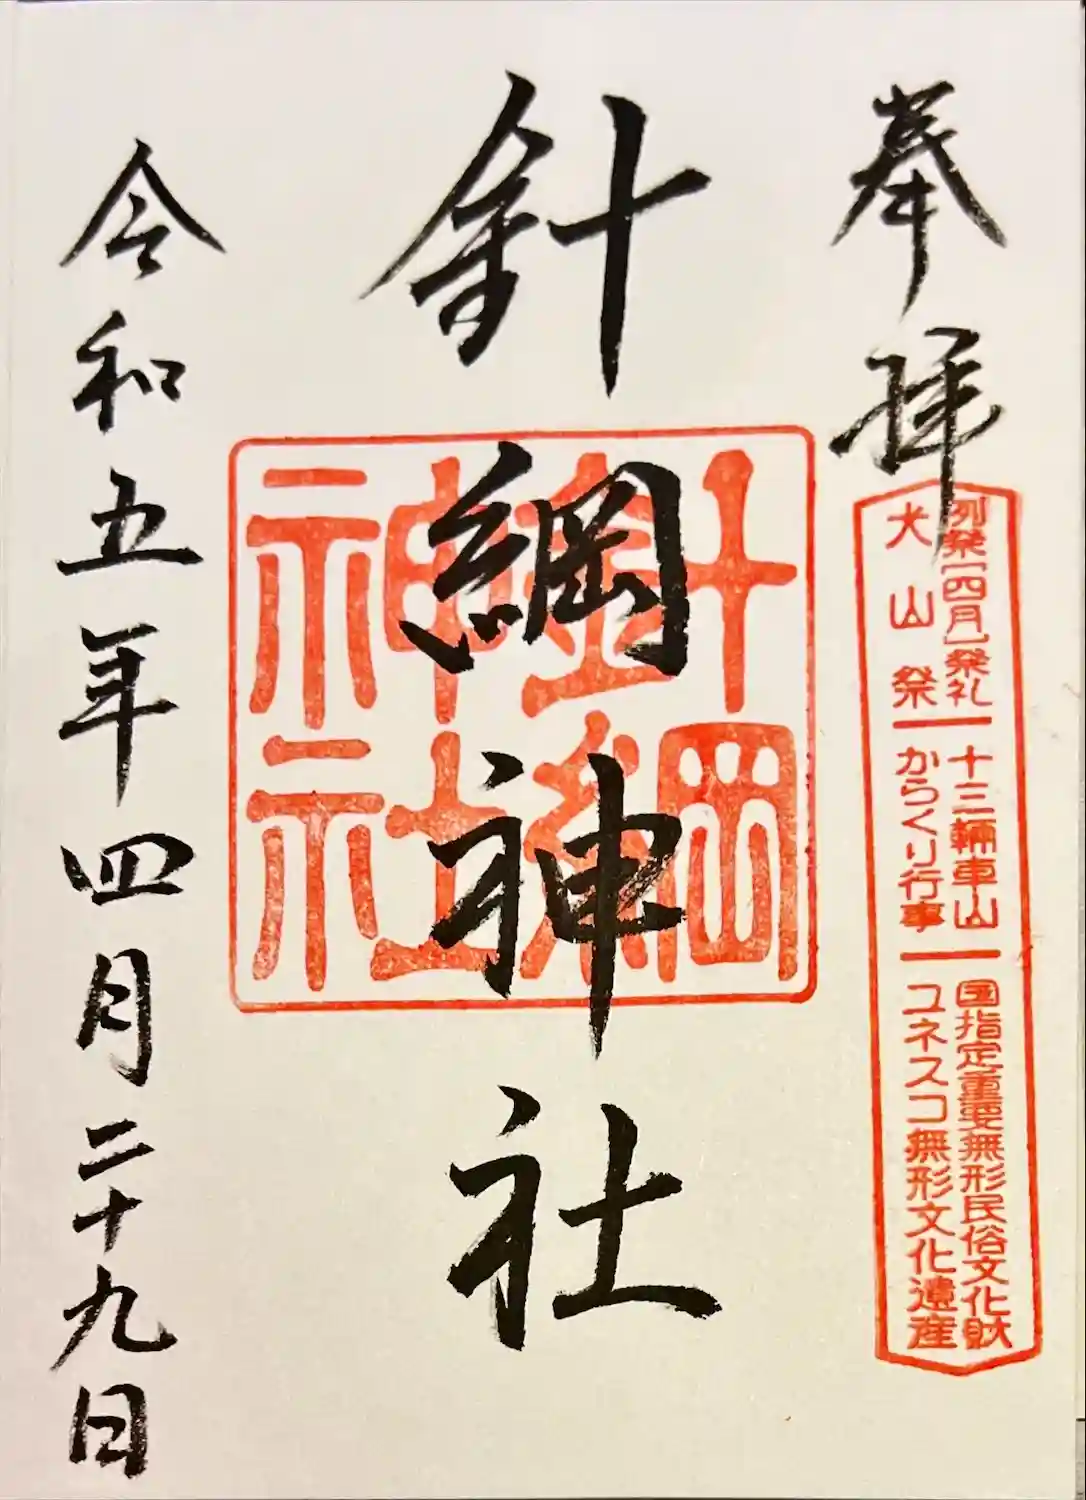 奉拝
例祭[四月]祭礼
犬山祭
十三輛車山
からくり行事
国指定重要無形民俗文化財
ユネスコ無形文化遺産
針綱神社
針綱
神社
令和五年四月二十九日